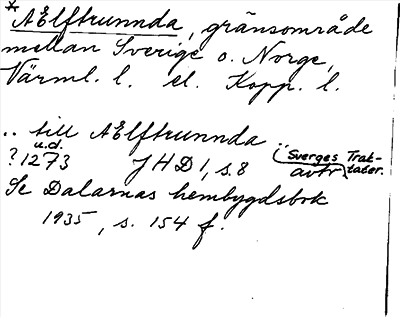 * AElftrunnda, gränsområde
mellan Sverige o. Norge,
Värml. l. el. Kopp. l.
.. till AElftrunnda ..
u.d.
?1273 JHD 1, s. 8 (Sverges Trak-
avtr. tater.
Se Dalarnas hembygdsbok
1935, s. 154 f.